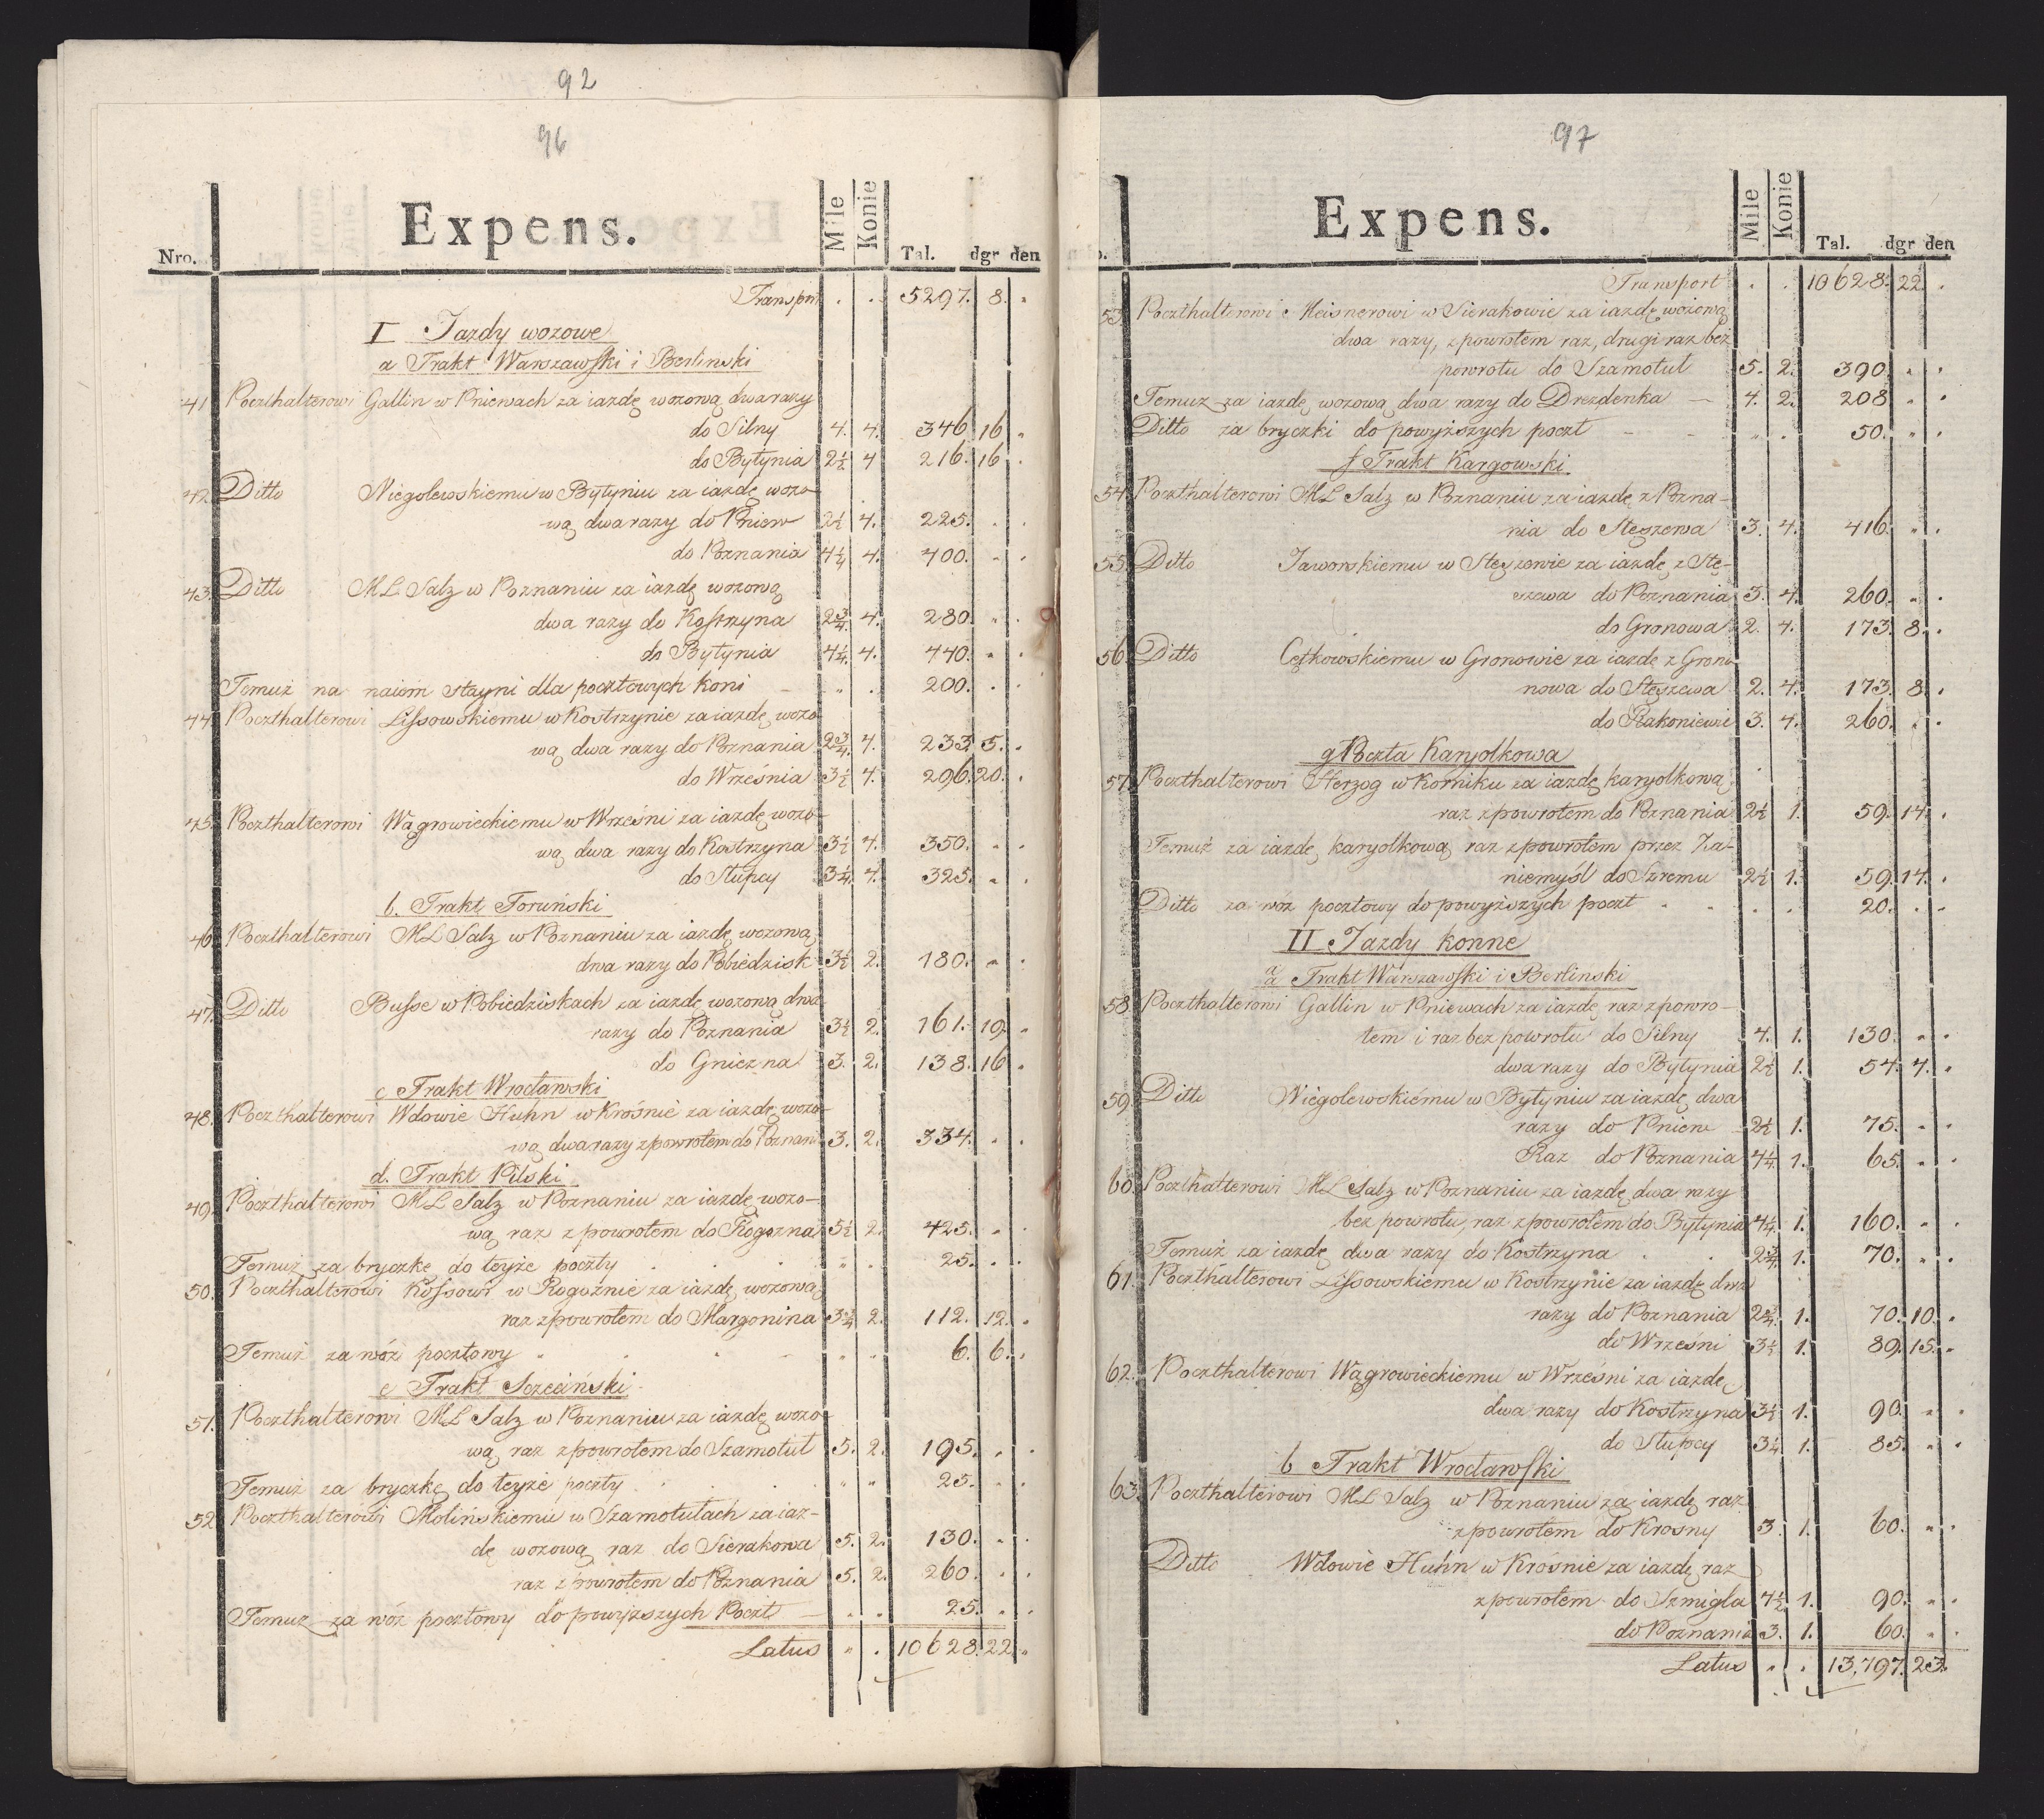 92
96
Expens.
Nro. Mile Konie Tal. dgr den
Transport . . 5297. 8. "
I Jazdy wozowe
a Trakt Warszawski i Berlinski
41 Poczthalterowi Gallin w Pniewach za iazdę wozową dwa razy
do Silny 4. 4. 346 16 "
do Bytynia 2½ 4 216. 16 .
42. Ditto Niegolewskiemu w Bytyniu za iazdę wozo-
wą dwa razy do Pniew 2½ 4. 225. . .
do Poznania 4¼ 4. 400. " .
43. Ditto ML Salz w Poznaniu za iazdę wozową
dwa razy do Kostrzyna 2¾ 4. 280. " .
do Bytynia 4¼ 4. 440. " .
Temuż na naiem stayni dla pocztowych koni – " . 200. . .
44 Poczthalterowi Lissowskiemu w Kostrzynie za iazdę wozo-
wą dwa razy do Poznania 2¾ 4. 233 5. "
do Września 3½ 4. 296. 20. .
45. Poczthalterowi Wągrowieckiemu w Wrześni za iazdę wozo-
wą dwa razy do Kostrzyna 3½ 4. 350. " .
do Słupcy 3¼ 4. 325. " .
b. Trakt Toruński
46. Poczthalterowi ML Salz w Poznaniu za iazdę wozową
dwa razy do Pobiedzisk 3½ 2. 180. " .
47. Ditto Busse w Pobiedziskach za iazdę wozową dwa
razy do Poznania 3½ 2. 161. 19. "
do Gniezna 3. 2. 138. 16 "
c Trakt Wrocławski
48. Poczthalterowi Wdowie Huhn w Krośnie za iazdę wozo-
wą dwa razy z powrotem do Poznania 3. 2. 334. " .
d. Trakt Pilski
49. Poczthalterowi ML Salz w Poznaniu za iazdę wozo-
wą raz z powrotem do Rogozna 5½ 2. 425. " .
Temuż za bryczkę do teyże poczty . . " . 25. . .
50. Poczthalterowi Kossowi w Rogoźnie za iazdę wozową
raz z powrotem do Margonina 3¾ 2. 112. 12. "
Temuż za wóz pocztowy " . " " 6. 6. .
e Trakt Szczeciński
51. Poczthalterowi ML Salz w Poznaniu za iazdę wozo-
wą raz z powrotem do Szamotuł 5. 2. 195. " .
Temuż za bryczkę do teyże poczty . . " " 25. " .
52 Poczthalterowi Molińskiemu w Szamotułach za iaz-
dę wozową raz do Sierakowa 5. 2. 130. " .
raz z powrotem do Poznania 5. 2. 260. " .
Temuż za wóz pocztowy do powyższych Poczt – " " 25. " .
Latus " . 10628. 22. "
97
Expens.
Mile Konie Tal. dgr den
Transport " . 10628. 22. .
53. Poczthalterowi Meisnerowi w Sierakowie za iazdę wozową
dwa razy, z powrotem raz, drugi raz bez
powrotu do Szamotuł 5. 2. 390. " .
Temuż za iazdę wozową dwa razy do Drezdenka – 4. 2. 208 " .
Ditto za bryczki do powyższych poczt – – " . 50. " .
f Trakt Kargowski
54. Poczthalterowi ML Salz w Poznaniu za iazdę z Pozna-
nia do Stęszewa 3. 4. 416. " .
55. Ditto Jaworskiemu w Stęszewie za iazdę z Stę-
szewa do Poznania 3. 4. 260. " .
do Gronowa 2. 4. 173. 8. .
56. Ditto Cętkowskiemu w Gronowie za iazdę z Gro-
nowa do Stęszewa 2. 4. 173. 8. .
do Rakoniewic 3. 4. 260. " .
g Poczta Karyolkowa
57. Poczthalterowi Herzog w Korniku za iazdę karyolkową
raz z powrotem do Poznania 2½ 1. 59. 14. .
Temuż za iazdę karyolkową raz z powrotem przez Za-
niemyśl do Szremu 2½ 1. 59. 14. .
Ditto za wóz pocztowy do powyższych poczt " " . . 20. . "
II Jazdy konne
a Trakt Warszawski i Berlinski
58. Poczthalterowi Gallin w Pniewach za iazdę raz z powro-
tem i raz bez powrotu do Silny 4. 1. 130. " .
dwa razy do Bytynia 2½ 1. 54. 4. .
59. Ditto Niegolewskiému w Bytyniu za iazdę dwa
razy do Pniew 2½ 1. 75. " .
Raz do Poznania 4¼ 1. 65. " .
60. Poczthalterowi ML Salz w Poznaniu za iazdę dwa razy
bez powrotu, raz z powrotem do Bytynia 4¼ 1. 160. " .
Temuż za iazdę dwa razy do Kostrzyna . . 2¾ 1. 70. " .
61. Poczthalterowi Lissowskiemu w Kostrzynie za iazdę dwa
razy do Poznania 2¾ 1. 70. 10. .
do Wrześni 3½ 1. 89. 15. .
62. Poczthalterowi Wągrowieckiemu w Wrześni za iazdę
dwa razy do Kostrzyna 3½ 1. 90. " .
do Słupcy 3¼ 1. 85. " .
b Trakt Wrocławski
63. Poczthalterowi ML Salz w Poznaniu za iazdę raz
z powrotem do Krosny 3. 1. 60. " .
Ditto Wdowie Huhn w Krośnie za iazdę raz
z powrotem do Szmigla 4½ 1. 90. " .
do Poznania 3. 1. 60. " .
Latus " . 13,797. 23.